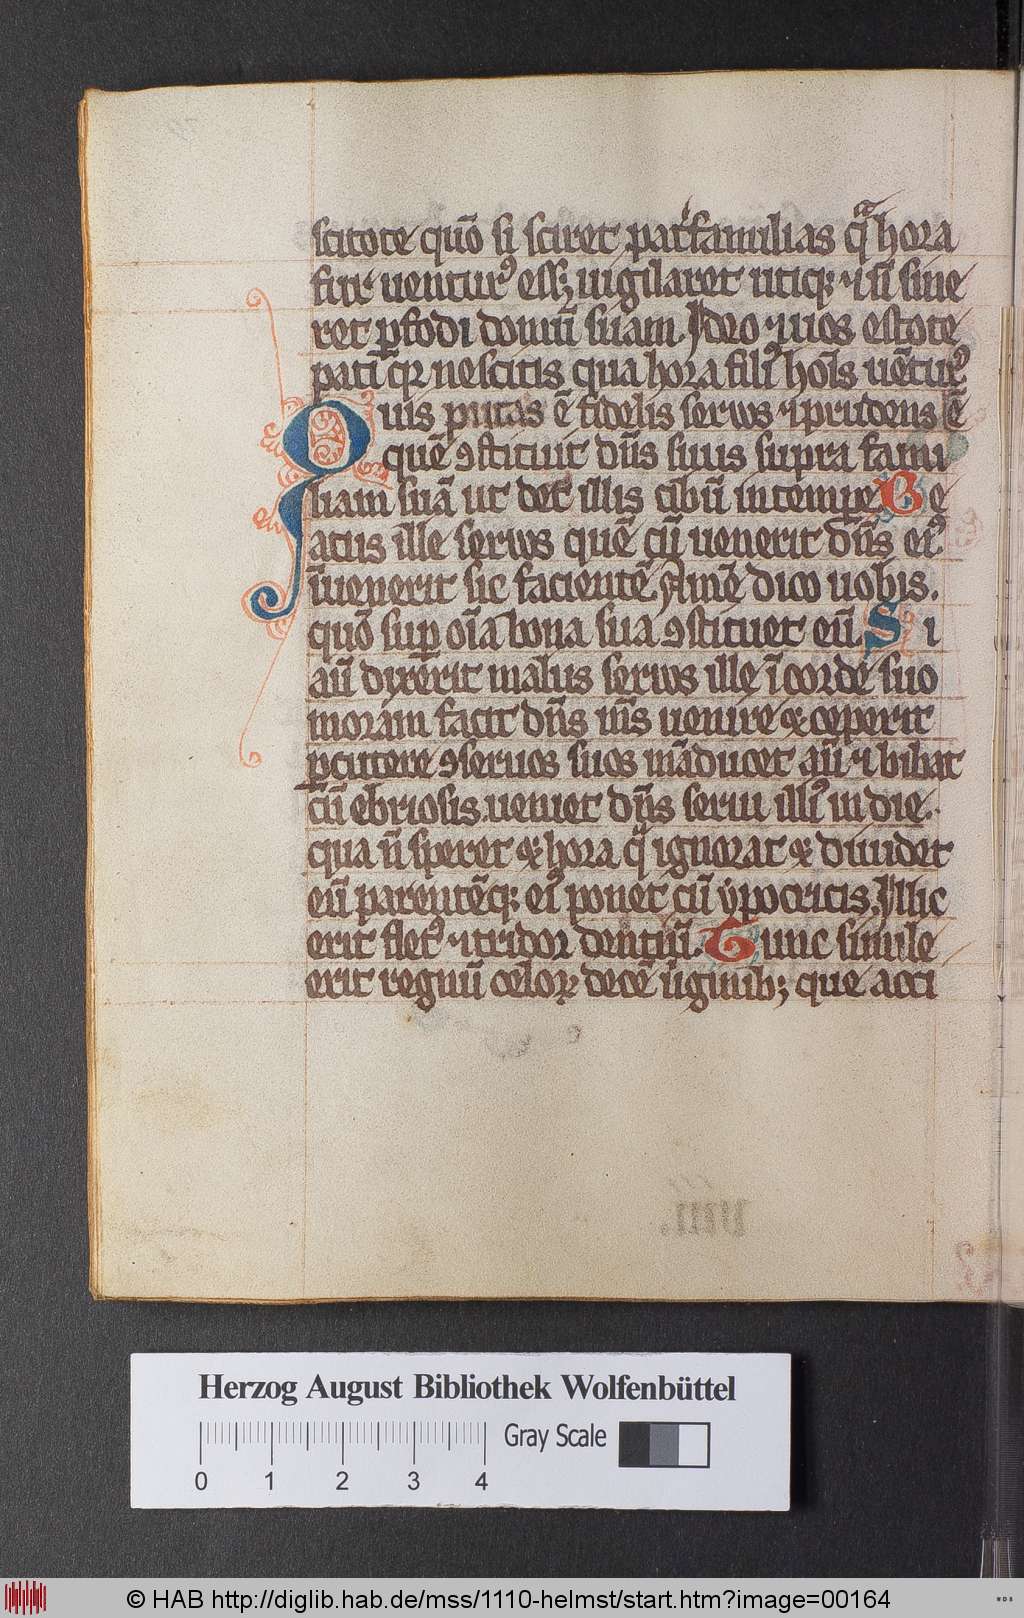 scitote quō si sciret patͬfamilias qͣ hora
fur uenturꝰ esſꝫ uigilaret utiqꝫ ⁊ nͦ sine
ret ꝑfodi domū suam. Ideo ⁊ uos estote
pati qꝛ nescitis qua hora filiꝰ hoīs uētuꝰ
Quis putas ē fidelis seruus ⁊ prudens ē
quē ꝯstituit dn̄s suus supra fami
liam suā ut det illis cibū in tempe Be
atus ille seruus quē cū uenerit dn̄s eiꝰ
īuenerit sic facientē. Amē dico uobis.
quō suꝑ oīa bona sua ꝯstituet eū. Si
aū dixerit malus seruus ille ī corde suo
moram facit dn̄s ms uenire et ceperit
ꝑcutere ꝯseruos suos māducet aū ⁊ bibat
cū ebriosis. ueniet dn̄s serui illiꝰ in die.
qua n̄ speret et hora qͣ ignorat et diuidet
eū parentēqꝫ eiꝰ ponet cū ypocritis. Illic
erit fletꝰ ⁊ stridor dentiū. Tunc simile
erit regnū celoꝝ decē uͥginibꝫ que acci
Herzog August Bibliothek Wolfenbüttel
0 1 2 3 4
Gray Scale
© HAB http://diglib.hab.de/mss/1110-helmst/start.htm?image=00164